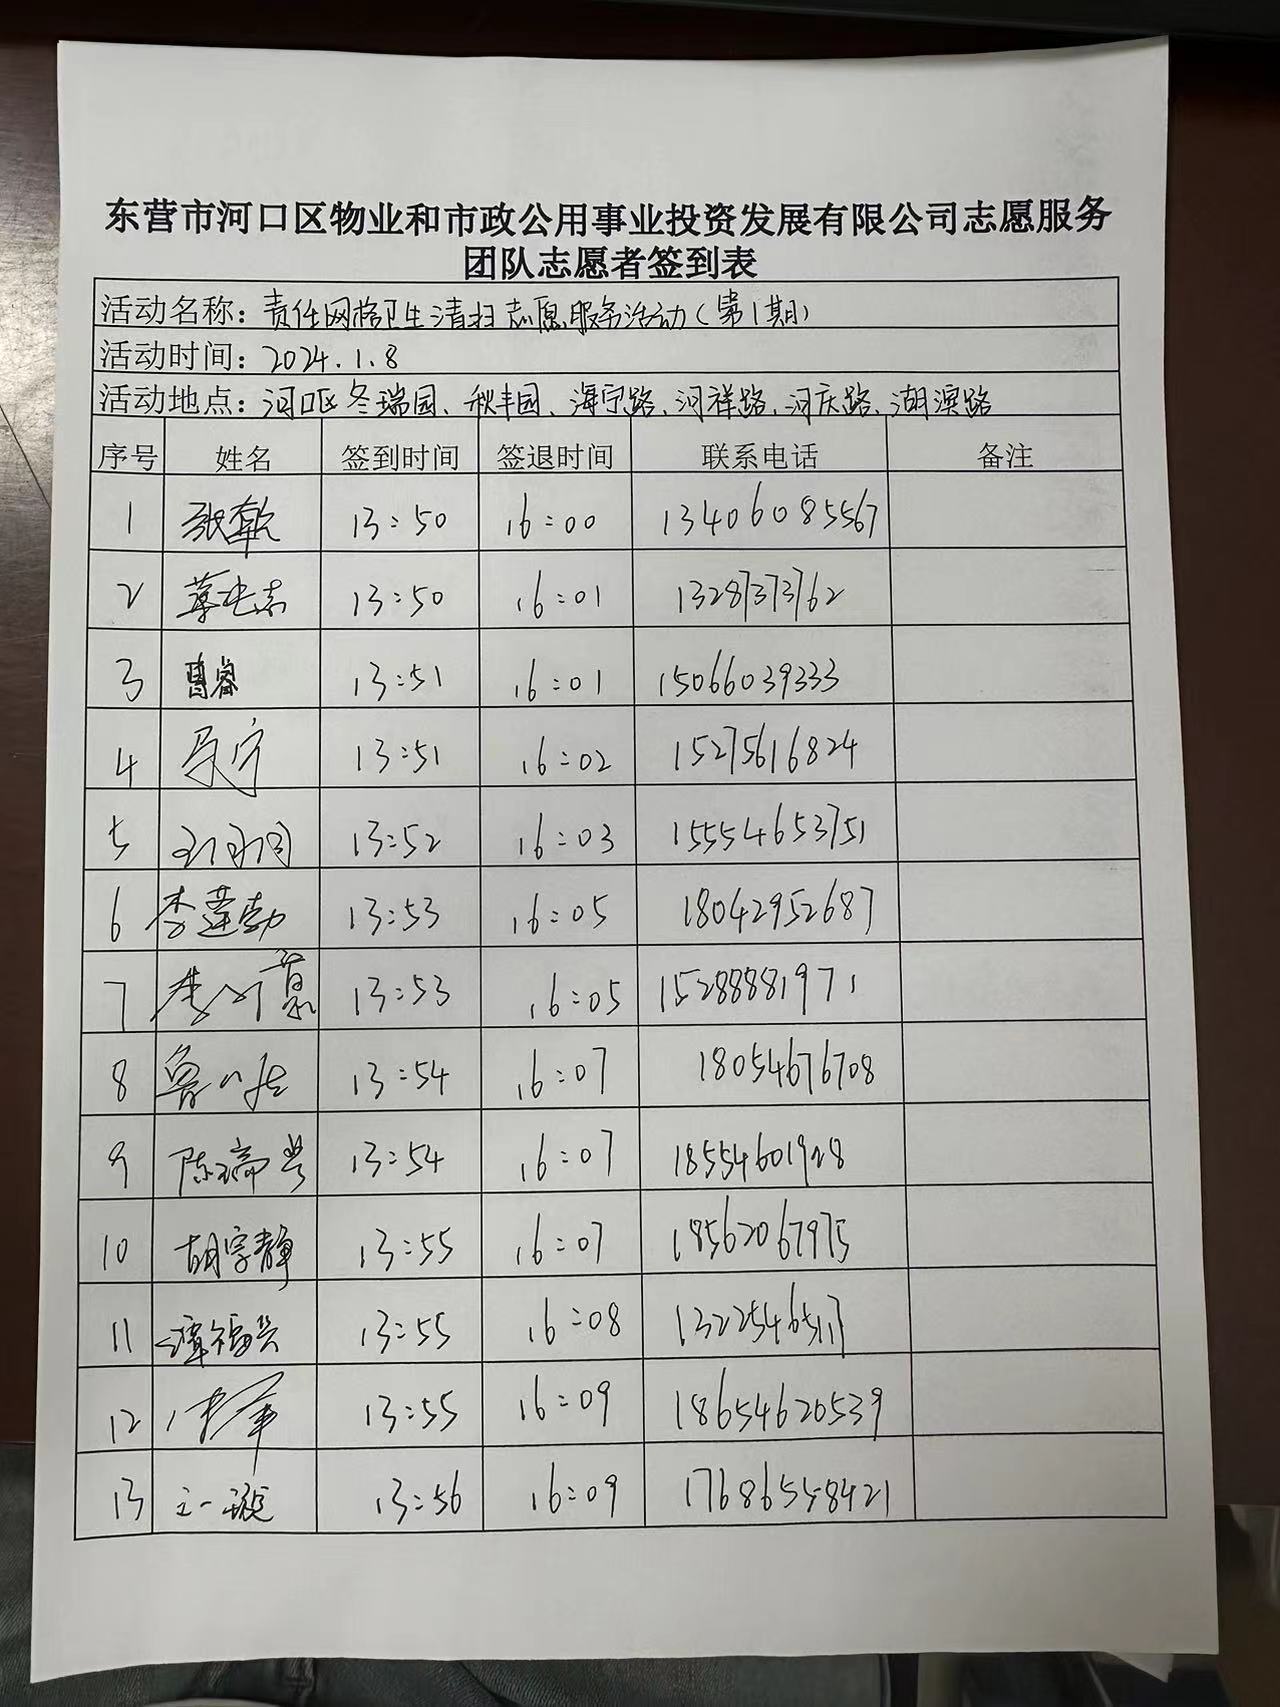 东营市河口区物业和市政公用事业投资发展有限公司志愿服务
团队志愿者签到表
活动名称：责任网格卫生清扫志愿服务活动（第1期）
活动时间：2024.1.8
活动地点：河口区冬瑞园、秋丰园、海宁路、河祥路、河庆路、湖滨路
序号 姓名 签到时间 签退时间 联系电话 备注
1 张乾 13:50 16:00 13406085567
2 13:50 16:01 13287373762
3 曹睿 13:51 16:01 15066039333
4 13:51 16:02 15275616824
5 13:52 16:03 15554653751
6 李莲勃 13:53 16:05 18042952687
7 李 13:53 16:05 15288881971
8 鲁 13:54 16:07 18054676708
9 陈 13:54 16:07 18554601928
10 胡宇静 13:55 16:07 18562067975
11 谭福兴 13:55 16:08
12 13:55 16:09 18654620539
13 王一 13:56 16:09 17686558421